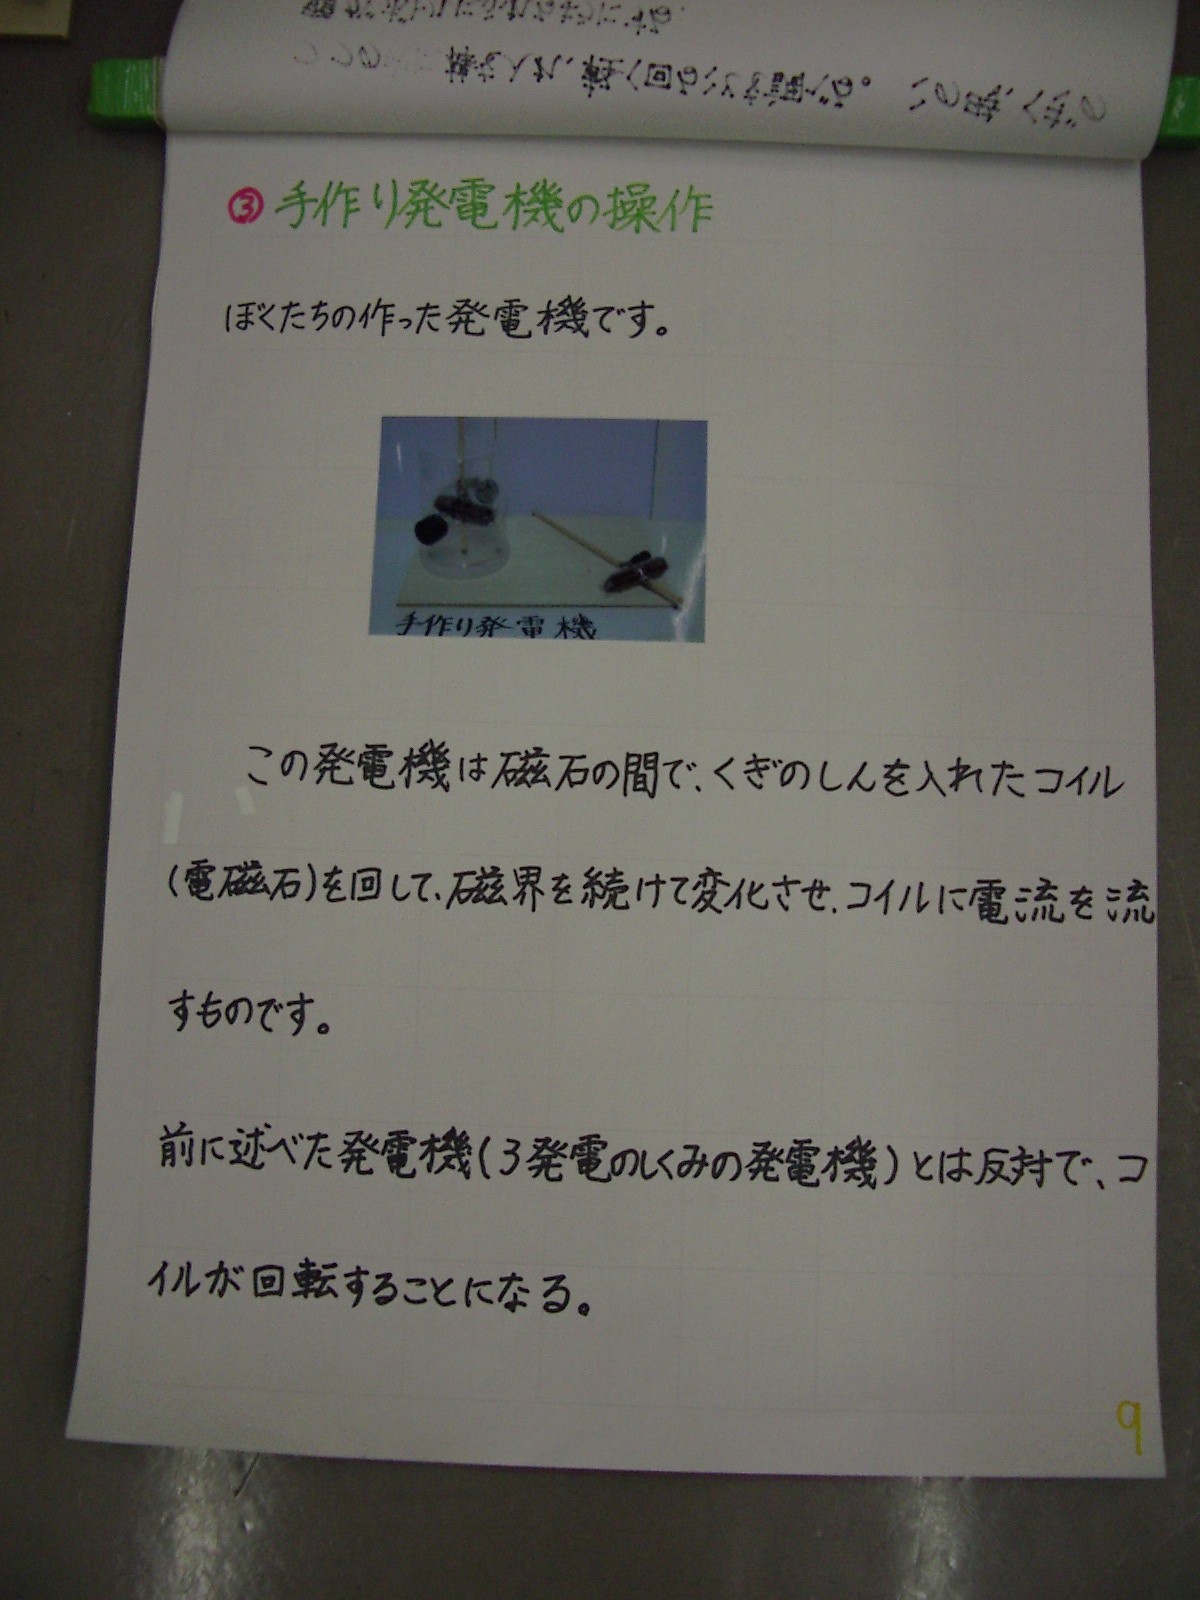 ③ 手作り発電機の操作
ぼくたちの作った発電機です。
手作り発電機
この発電機は磁石の間で、くぎのしんを入れたコイル
(電磁石)を回して、磁界を続けて変化させ、コイルに電流を流
すものです。
前に述べた発電機(3発電のしくみの発電機)とは反対で、コ
イルが回転することになる。
9